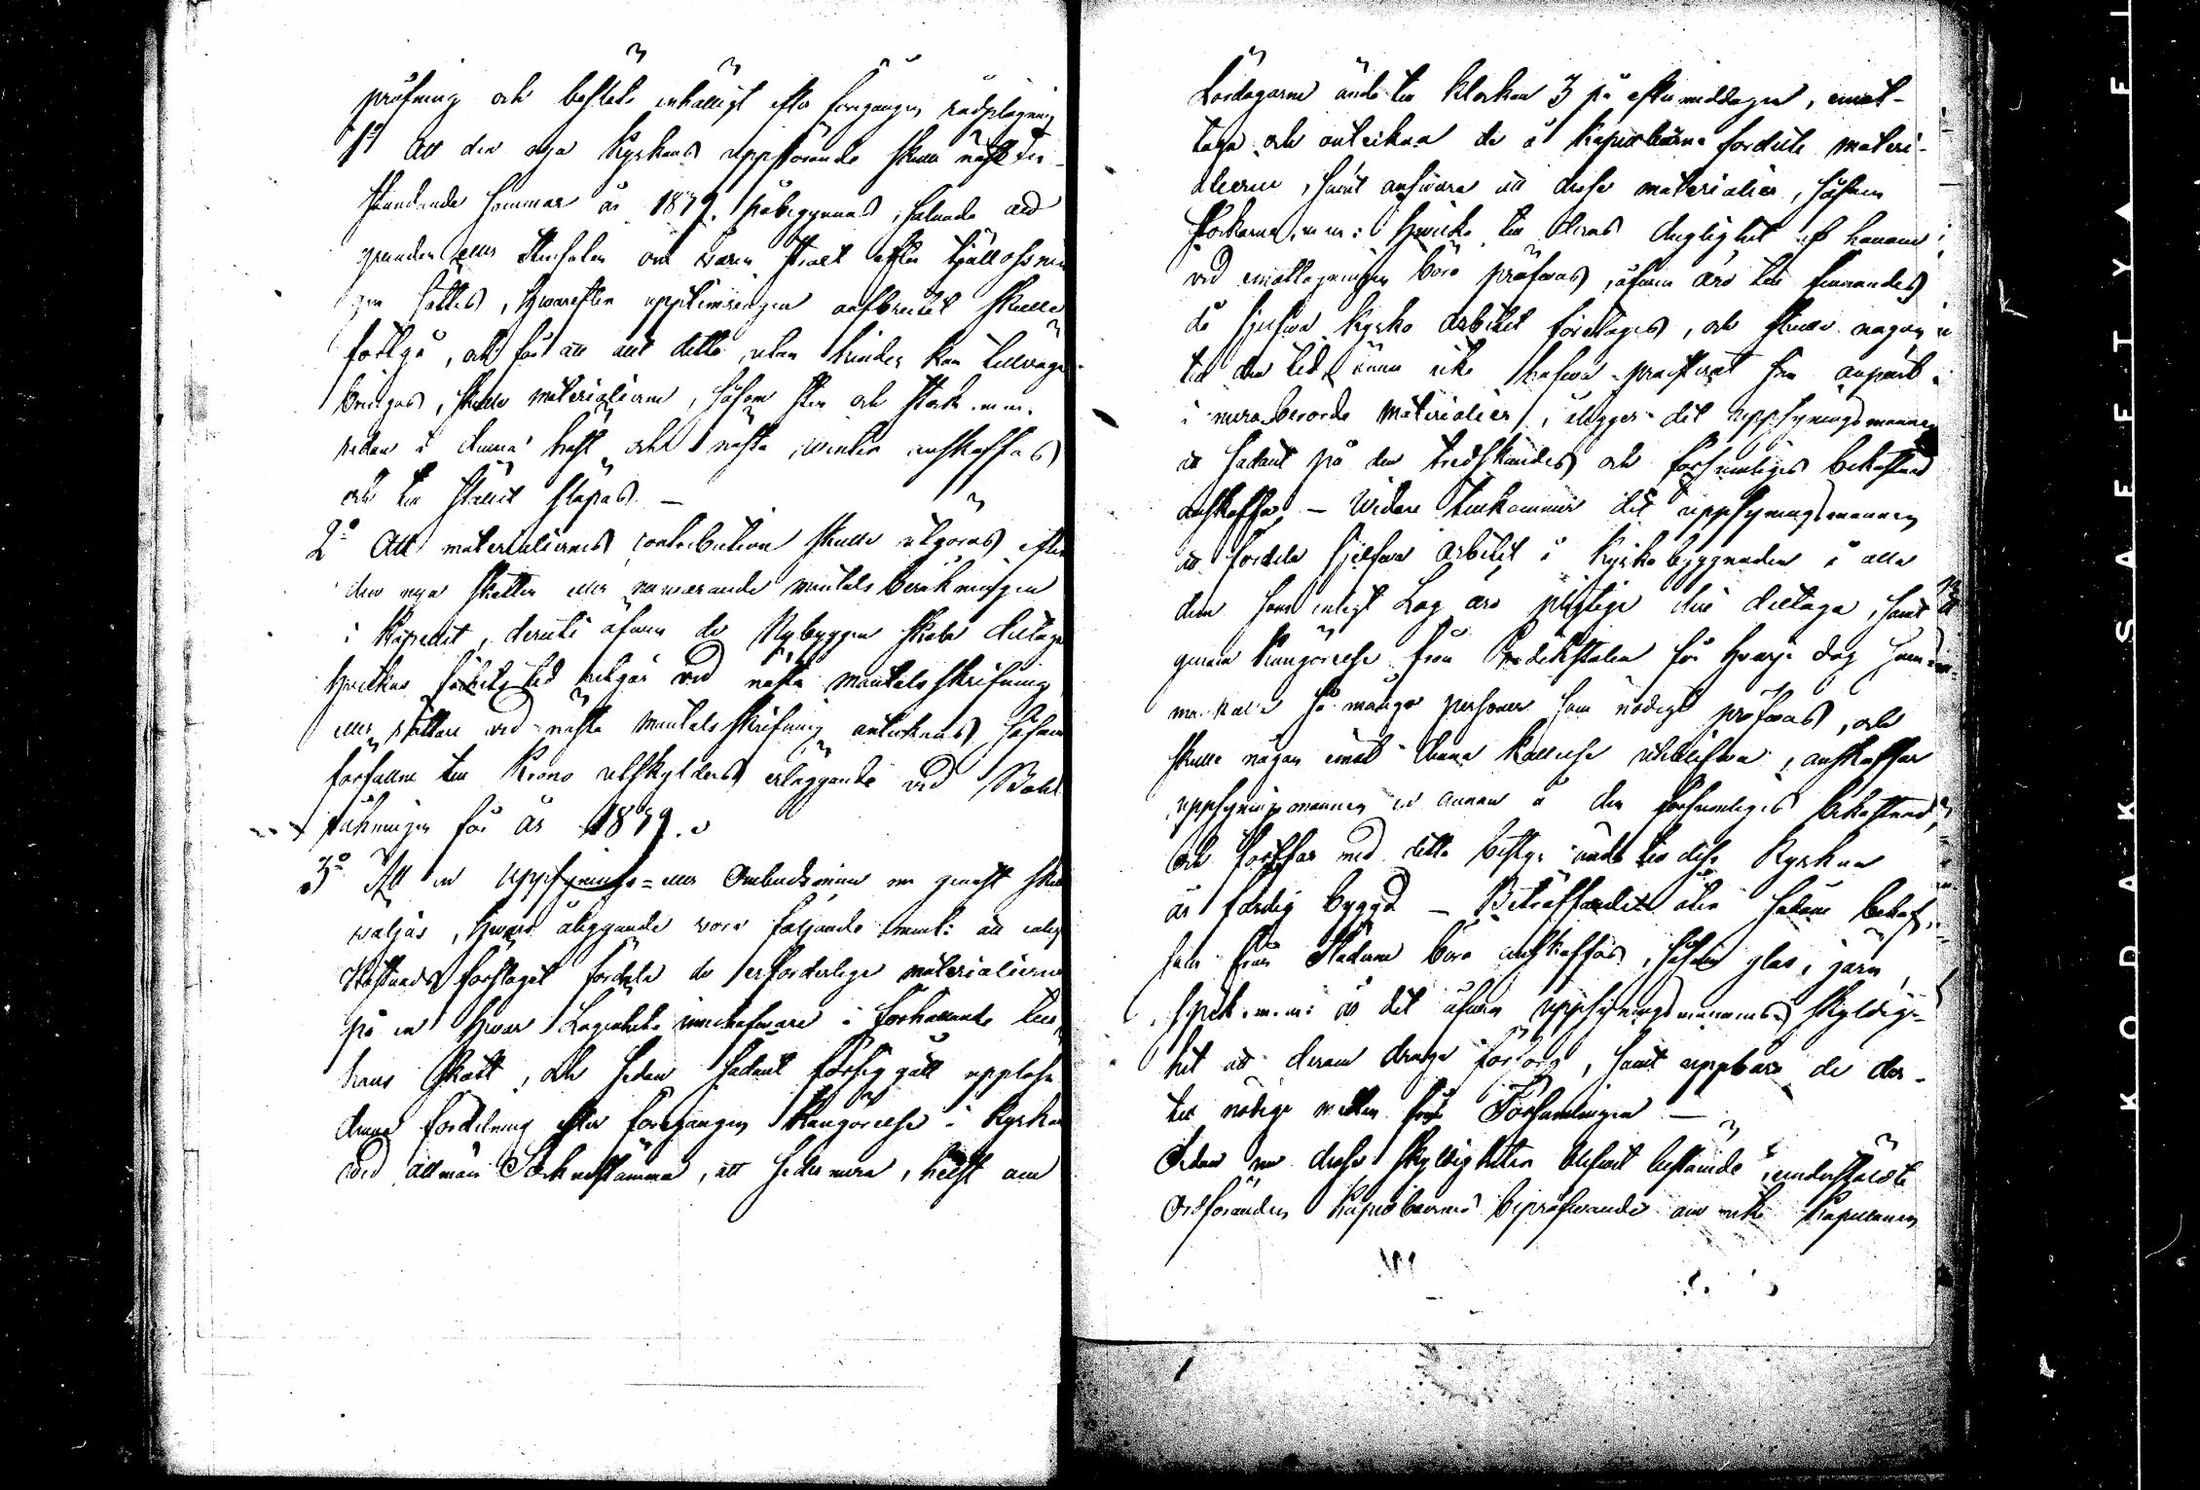 pröfning och beslöts enhälligt efter föregången rådplägning
1o Att den nya Kyrkans uppförande skulle näst till-
stundande sommar år 1879. påbegynnas, sålunda att
grunden eller stenfoten om våren strax efter tjällossnin
gen sättes, hwarefter upptimringen ofelbart skulle
fortgå, och för att allt detta utan hinder kan tillwäga
bringas, skulle materialierne, såsom sten och stock m.m.
redan i denna höst och nästa winter anskaffas
och till stället släpas. —
2o Att materialiernes contribution skulle utgöras efter
den nya skatten eller nuvarande mantals beräkningen
i Kapellet, deruti äfwen de Nybyggen skola deltaga
hvilkas frihets tid utgår wid nästa mantalsskrifning
eller rättare wid nästa mantalsskrifning antecknas såsom
förfallne till Krono utskylders erläggande wid
räkningen för år 1879.
3o Att en Uppsynings- eller Ombudsman nu genast skulle
wäljas, hwars åliggande wore följande neml: att enligt
Kostnads förslaget fördela de erforderliga materialierne
på en hwar Lägenhets innehafware i förhållande till
hans skatt, och sedan sådant försiggått uppläsa
denna fördelning efter föregången kungörelse i Kyrkan
wid allmän Sockenstämma, att sedermera, helst om
Lördagarne ända till klockan 3 på eftermiddagen, emot-
taga och anteckna de å Kapellboerne fördelte materi-
alierne, samt answara att desse materialier, såsom
stockarne, m.m: hwilka till deras duglighet af honom
wid emottagningen böra pröfwas, äfwen äro till finnandes
då sjelfwa Kyrko arbetet företages, och skulle någon
till den tid ännu icke hafwa presterat sin anpart
i merberörde materialier, ålägger det uppsyningsmannen
att sådant på den tredskandes och försumliges bekostnad
anskaffa. — Widare tillkommer det uppsyningsmannen
att fördela sjelfwa arbetet i Kyrko byggnaden å alla
dem som enligt Lag äro pligtige deri deltaga, samt att
genom kungörelse från Predikstolen för hwarje dag
så många personer som nödigt pröfwas, och
skulle någon emot denna kallelse uteblifwa, anskaffar
uppsyningsmannen en annan å den försumliges bekostnad,
och fortfar med detta bestyr ända till dess Kyrkan
är färdig byggd — Beträffande åter sådane behof,
som från Staden böra anskaffas, såsom glas, järn,
spik m.m: är det äfwen uppsyningsmannens skyldig-
het att derom draga försorg, samt uppbära de der-
till nödige medlen från Församlingen —
Sedan nu desse skyldigheter blifwit bestämde, underställde
Ordföranden Kapellboernes bepröfwande om icke Kapellanen